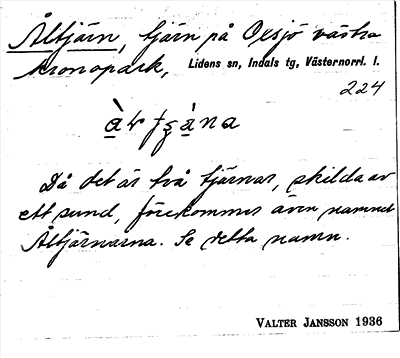 Åltjärn, tjärn på Oxsjö västra
kronopark, Lidens sn, Indals tg, Västernorrl. l.
224
Då det är två tjärnar, skilda av
ett sund, förekommer även namnet
Åltjärnarna. Se detta namn.
VALTER JANSSON 1936